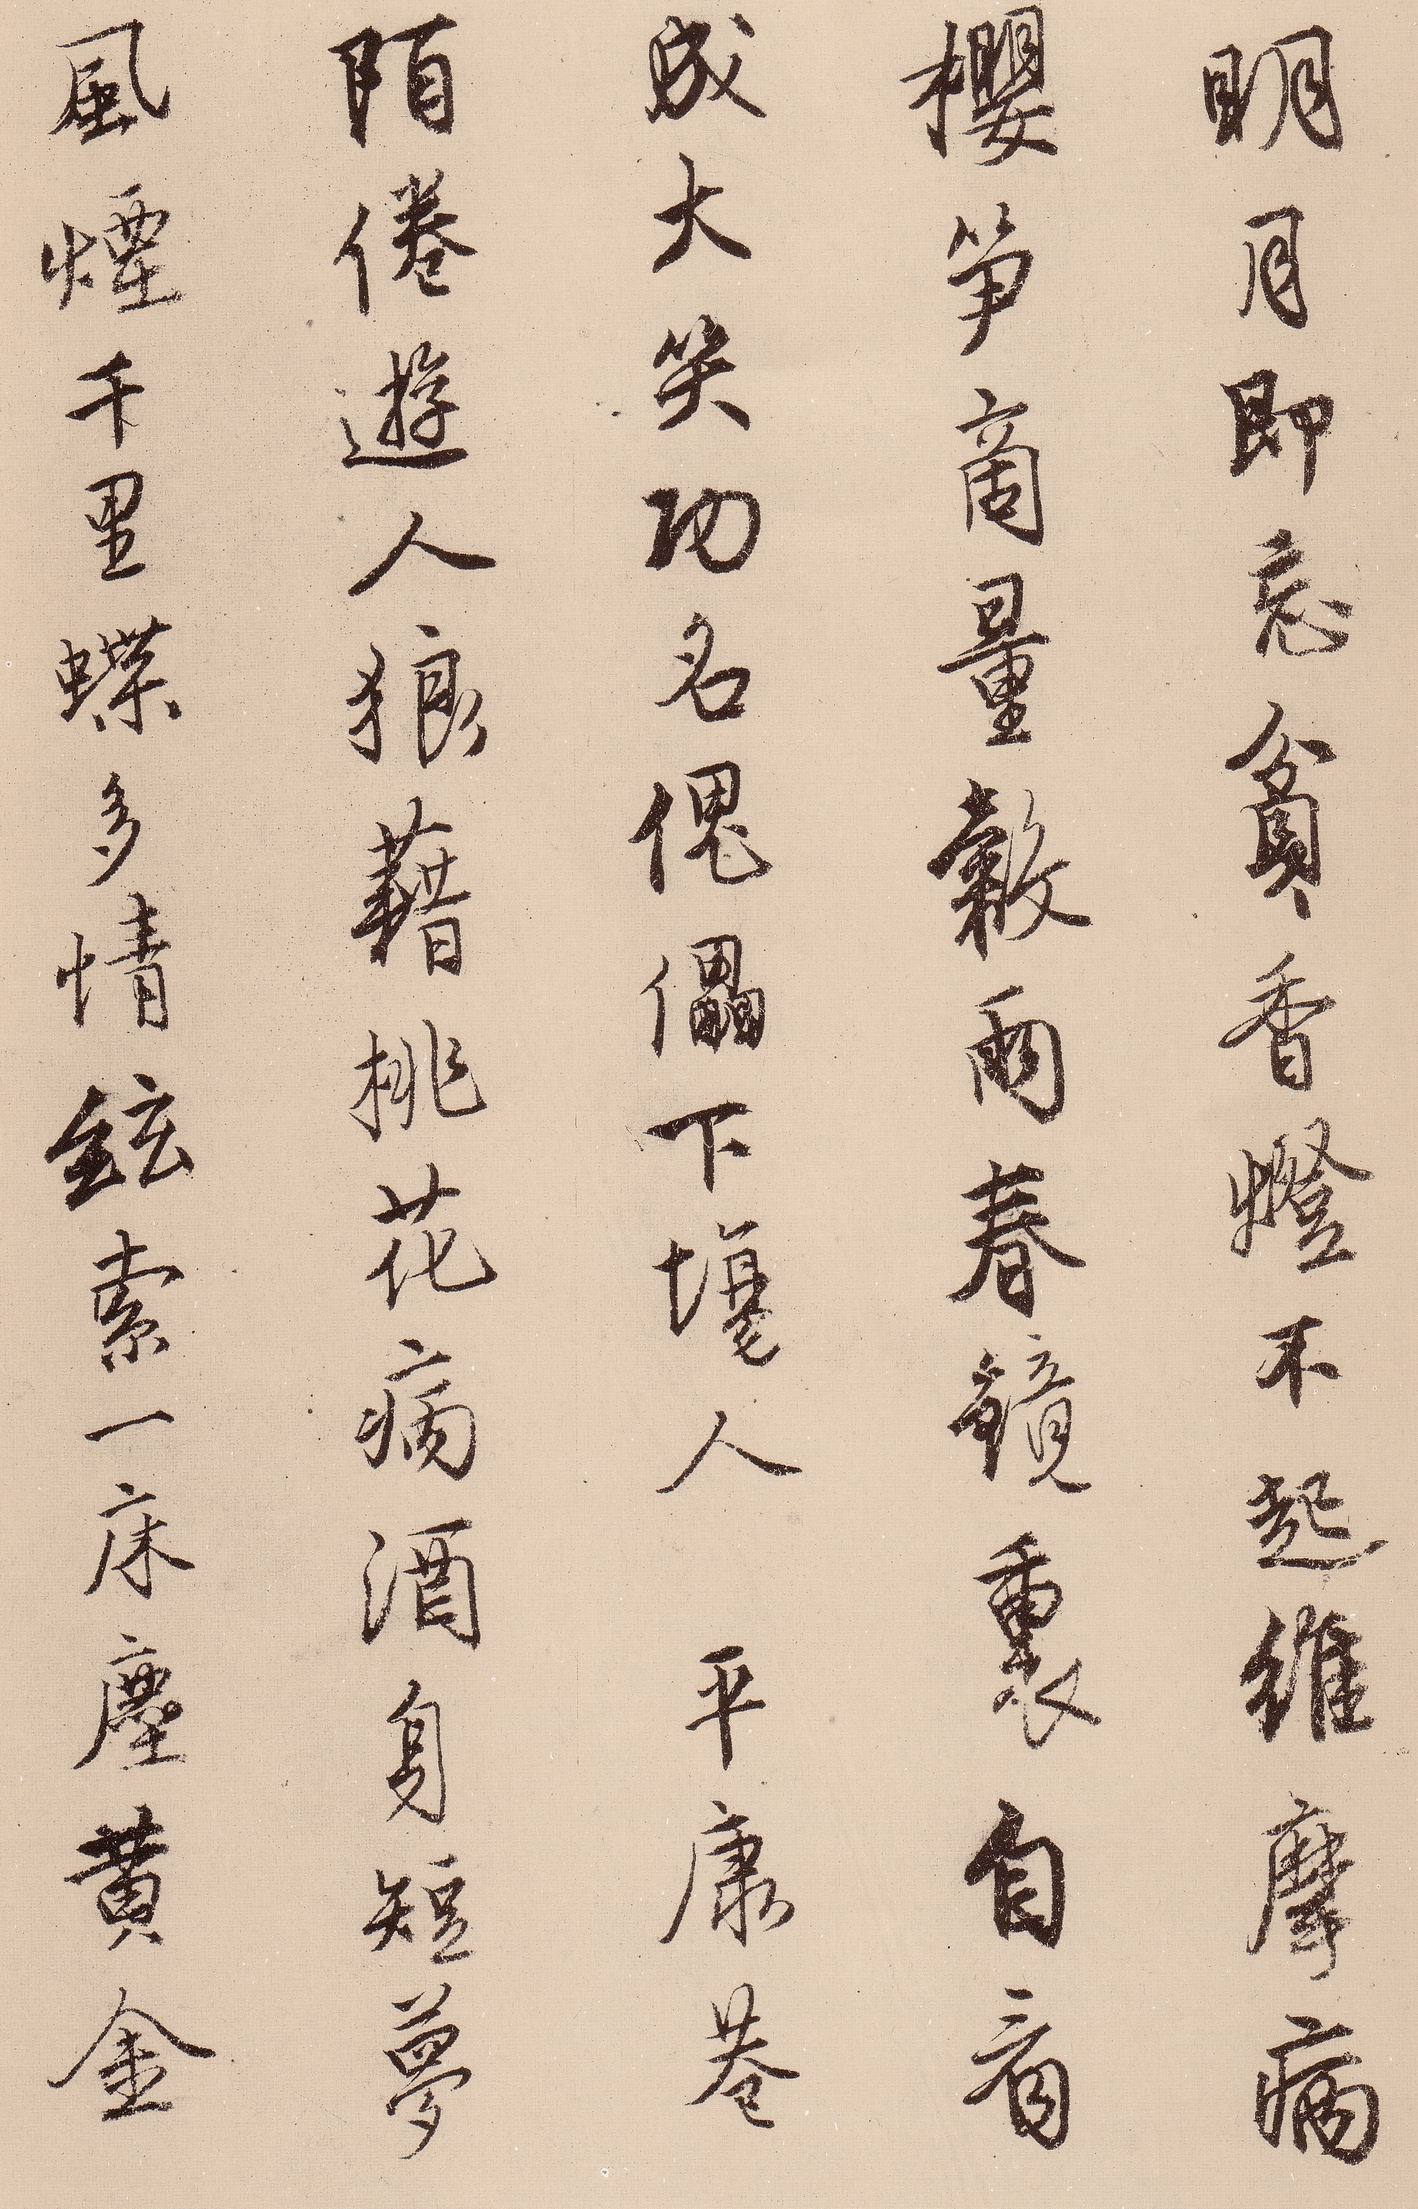 明月即忘貧香燈不起維摩病
櫻笋商量穀雨春鏡裏自看
成大笑功名傀儡下場人　平康巷
陌倦遊人狼藉桃花病酒身短夢
風煙千里蝶多情絃索一床塵黄金